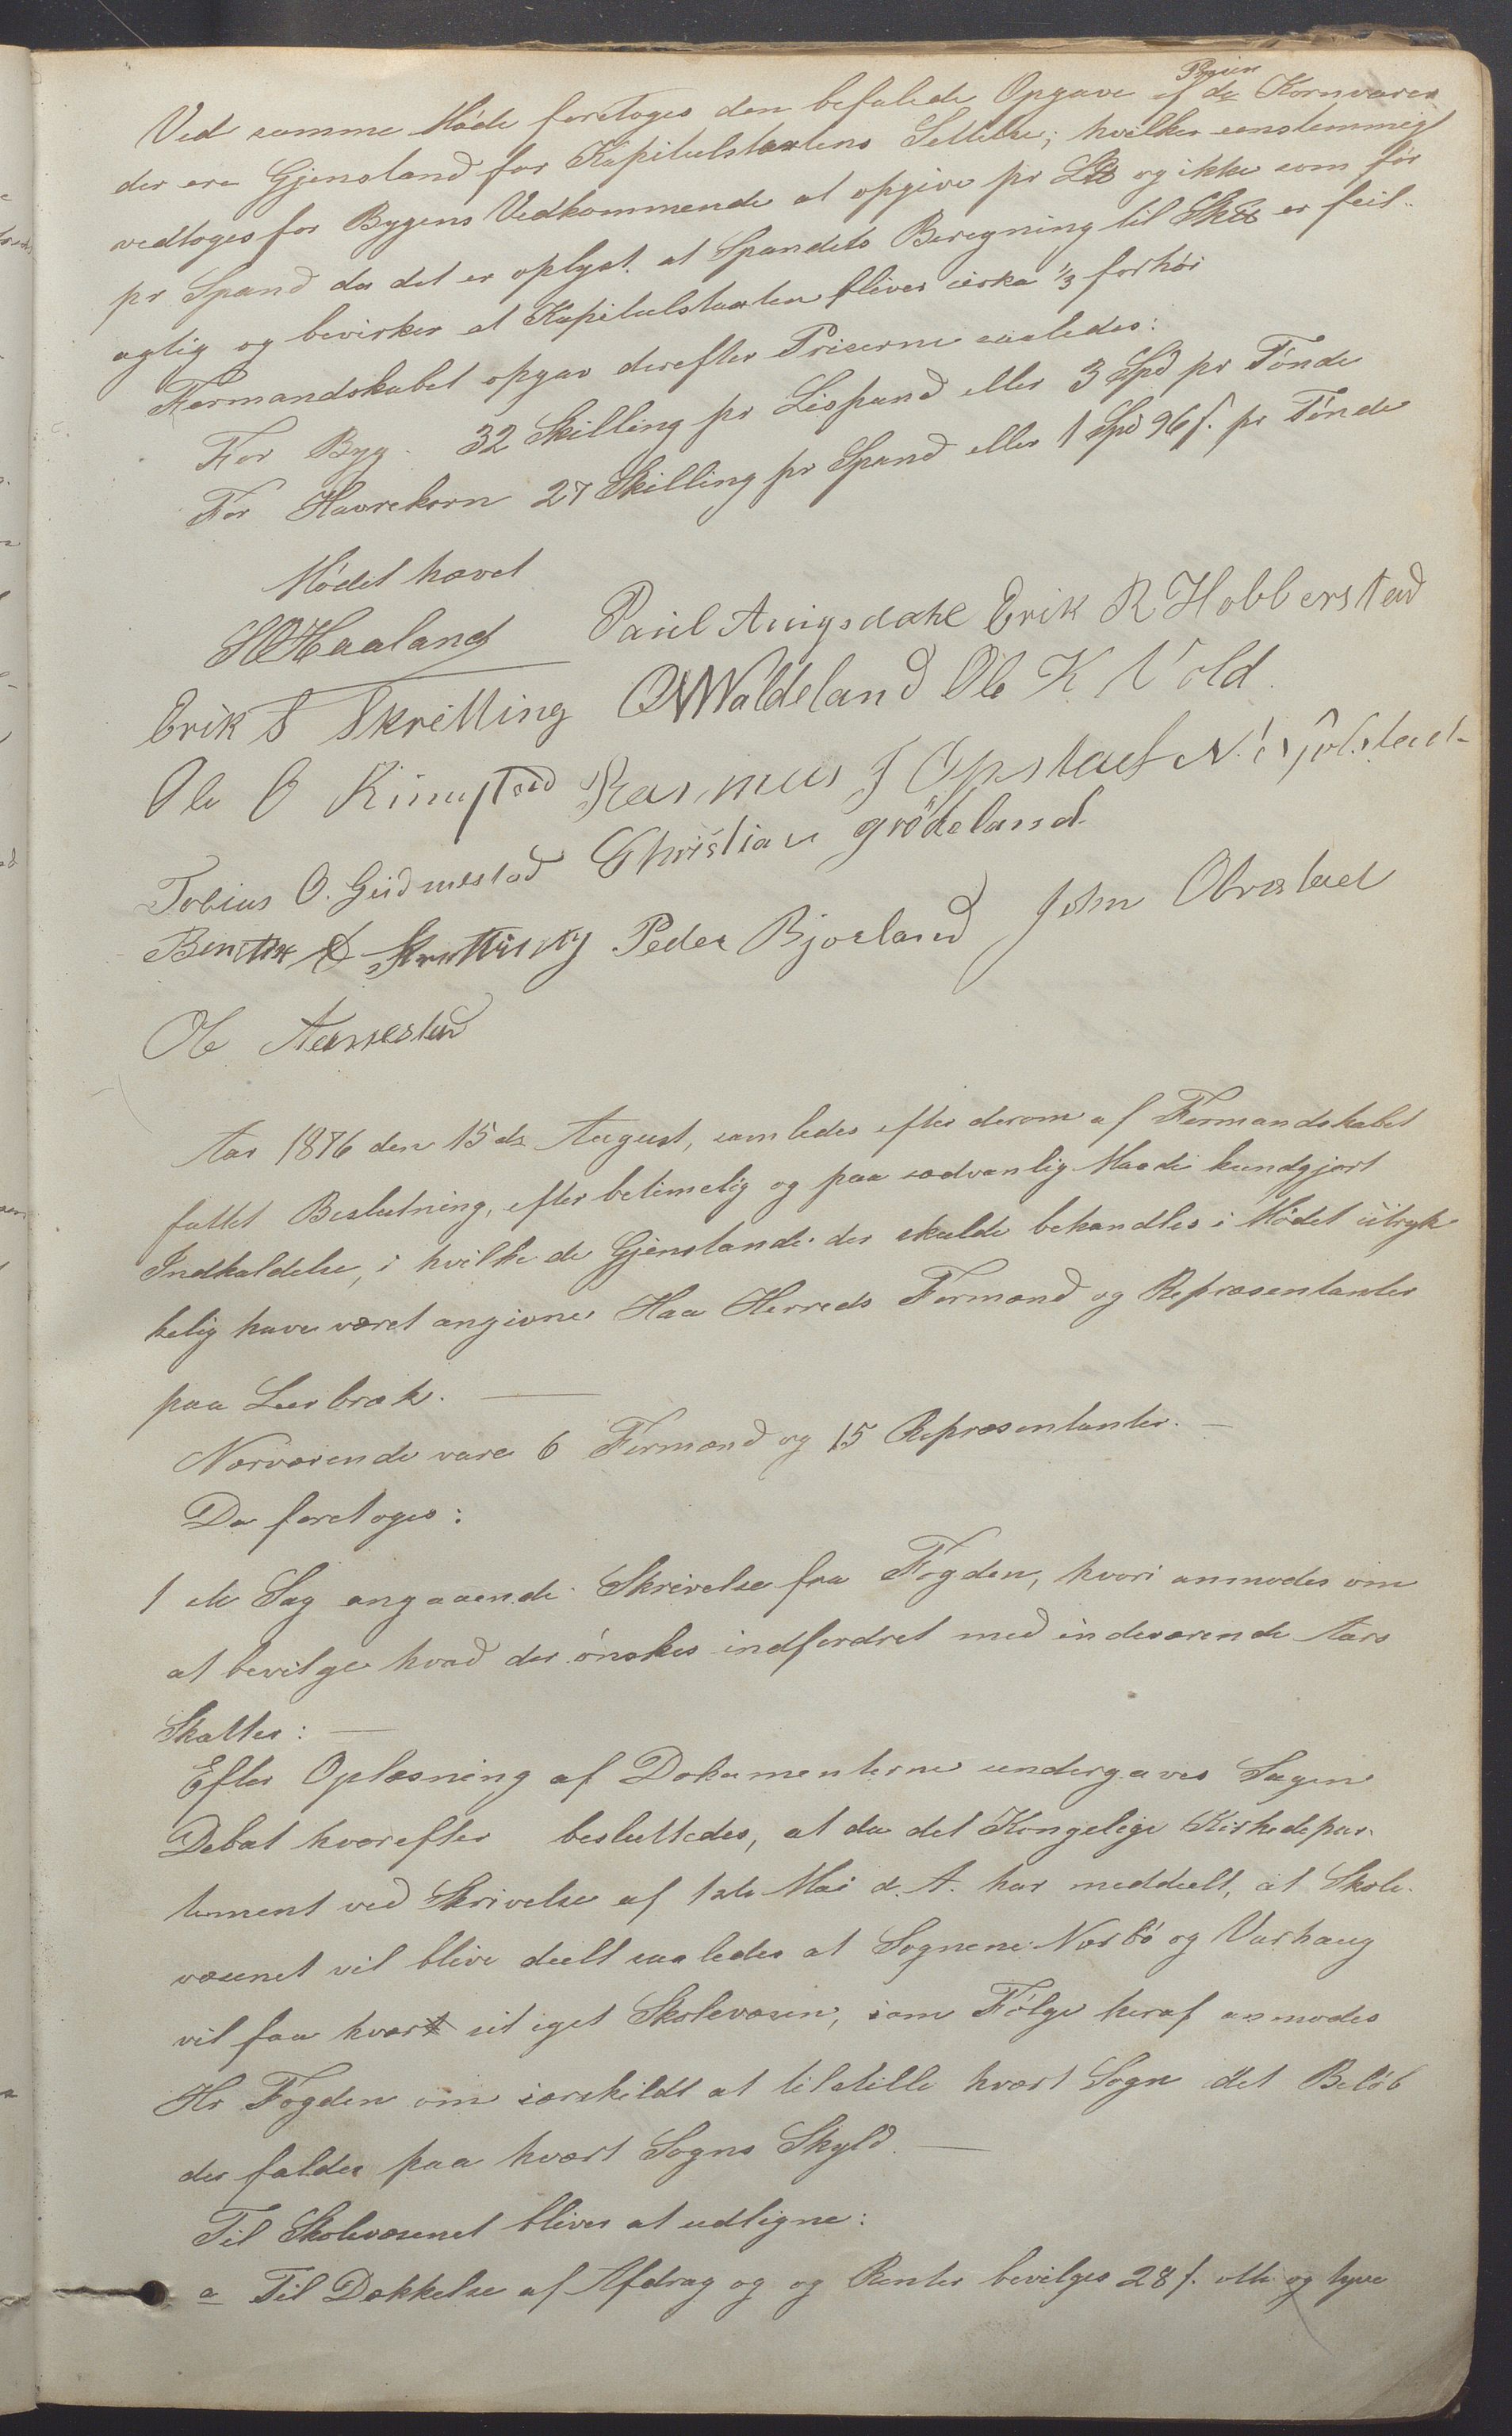 Ved samme Møde foretoges den befalede Opgave af Prisen
de Kornvarer
der ere Gjenstand for Kapitelstaxtens Settelse; hvilker eenstemmigt
vedtoges for Bygens Vedkommende at opgive pr L℔ og ikke som før
pr Spand da det er oplyst at Spandets Beregning til Sk℔ er feil-
agtig og bevirker at Kapitelstaxten bliver cirka 1/3 forhøi
Formandskabet opgav derefter Priserne saaledes:
For Byg. 32 Skilling pr Lispund eller 3 Spd pr Tønde
For Havrekorn 27 Skilling pr Spand eller 1 Spd 96 s. pr Tønde
Mødet hævet
H O Haaland Paul Auigsdahl Erik R Hobberstad
Erik S Skretting O W Valdeland Ole K Vold.
Ole O Ringstad Rasmus J Opstad N. Njølstad
Tobias O. Gudmestad Christian Grødeland
Bentsen Skretting Peder Bjorland John Obrestad
Ole Aarrestad
Aar 1876 den 15de August, samledes efter derom af Formandskabet
fattet Beslutning, efter betimelig og paa sædvanlig Maade kundgjort
Indkaldelse, i hvilke de Gjenstande der skulde behandles i Mødet utryk
kelig have været angivne Haa Herreds Formænd og Repræsentanter
paa Lerbræk. —
Nærværende vare 6 Formænd og 15 Repræsentanter. —
Da foretoges:
1 ste Sag angaaende Skrivelse fra Fogden, hvori anmodes om
at bevilge hvad der ønskes indfordret med indeværende Aars
Skatter: —
Efter Oplæsning af Dokumenterne undergaves Sagen
Debat hvorefter besluttedes, at da det Kongelige Kirkedepar-
tement ved Skrivelse af 1ste Mai d. A. har meddeelt, at Skole-
væsenet vil blive deelt saaledes at Sognene Nærbø og Varhaug
vil faa hvert sit eget Skolevæsen, som Følge heraf anmodes
Hr Fogden om særskildt at tilstille hvert Sogn det Beløb
der falder paa hvert Sogns Skyld. —
Til Skolevæsenet bliver at udligne:
a Til Dækkelse af Afdrag og og Renter bevilges 28 s. otte og tyve